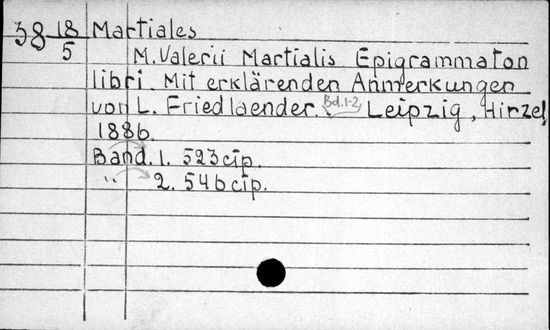 38 18/5 Martiales
M. Valerii Martialis Epigrammaton
libri. Mit erklärenden Anmerkungen
von L. Friedlaender. Bd. 1-2, Leipzig, Hirzel,
1886.
Band. 1. 523 cip.
" 2. 546 cip.